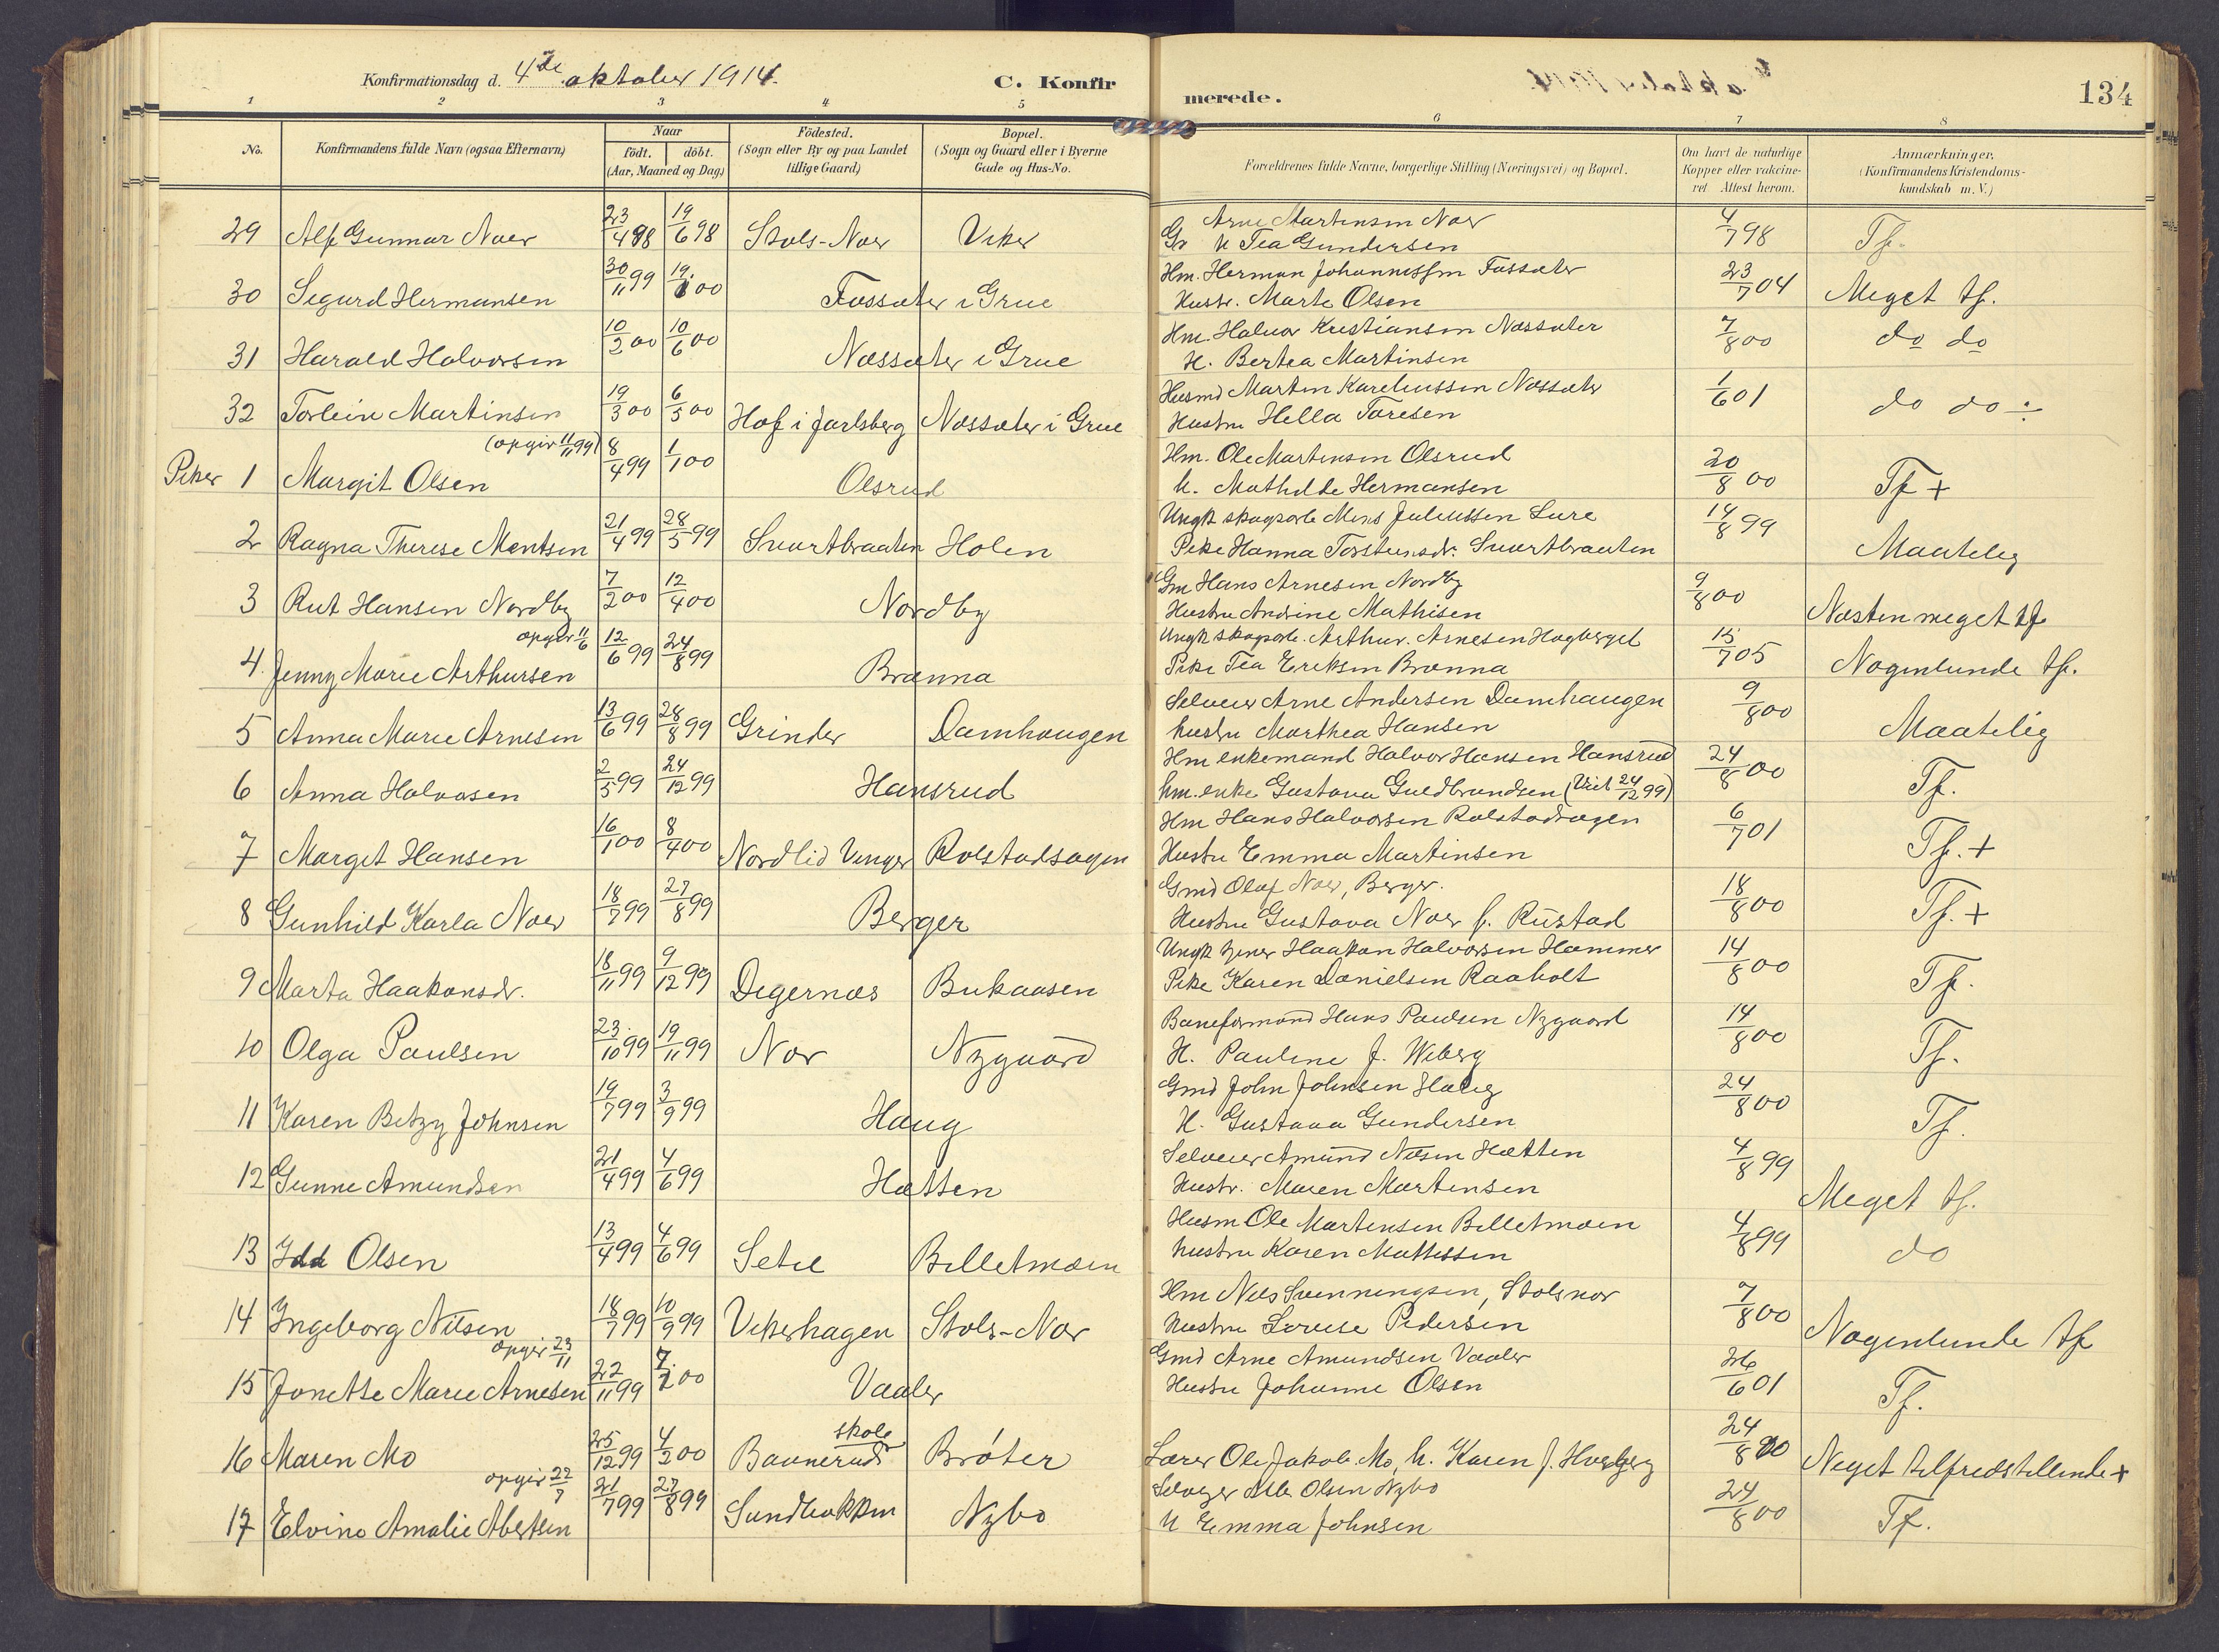 Konfirmationsdag d. 4de oktober 1914.
C. Konfirmerede.
134
1 2 3 4 5 6 7 8
No.
Konfirmandens fulde Navn (ogsaa Efternavn)
Naar
födt. döbt.
(Aar, Maaned og Dag)
Födested.
(Sogn eller By og paa Landet
tillige Gaard)
Bopæl.
(Sogn og Gaard eller i Byerne
Gade og Hus-No.
Forældrenes fulde Navne, borgerlige Stilling (Næringsvei) og Bopæl.
Om havt de naturlige
Kopper eller vakcine-
ret Attest herom.
Anmærkninger.
(Konfirmandens Kristendoms-
kundskab m. V.)
29 Alf Gunnar Noer 23/4 98 19/6 98 Stols-Noer Viker Arne Martinsen Noer 4/7 98 Tf.
H Tea Gundersen
30 Sigurd Hermansen 30/11 99 19/6 00 Fossæter i Grue Hm. Herman Johannessen Fossæter 23/7 04 Meget tf.
Hustr. Marte Olsen
31 Harald Halvorsen 10/2 00 10/6 00 Næssæter i Grue Hm. Halvor Kristiansen Næssæter 7/8 00 do do
H. Bertea Martinsen
32 Torleiv Martinsen 19/3 00 6/5 00 Hof i Jarlsberg Næssæter i Grue Husmd Martin Kareliussen Næssæter 1/6 01 do do
Hustru Hella Toresen
(opgir 11/11 99)
Piker 1 Margit Olsen 8/4 99 1/1 00 Olsrud Hm. Ole Martinsen Olsrud 20/8 00 Tf +
h. Mathilde Hermansen
2 Ragna Therese Mentsen 21/4 99 28/5 99 Svartbraaten Holen Ungk skogsarb Mens Juliussen Lure 14/8 99 Maatelig
Pike Hanna Torstensdr. Svartbraaten
3 Rut Hansen Nordby 7/2 00 12/4 00 Nordby Gm Hans Arnesen Nordby 9/8 00 Næsten meget tf
Hustru Andrine Mathisen
opgir 11/6
4. Jenny Marie Arthursen 12/6 99 24/8 99 Brænna Ungk skogsarb. Arthur Arnesen Hogberget 15/7 05 Nogenlunde tf.
Pike Tea Eriksen Brænna
5 Anna Marie Arnesen 13/6 99 28/8 99 Grinder Damhaugen Selveier Arne Andersen Damhaugen 9/8 00 Maatelig
hustru Marthea Hansen
6 Anna Halvosen 2/5 99 24/12 99 Hansrud Hm enkemand Halvor Hansen Hansrud 24/8 00 Tf.
hm. enke Gustava Guldbrandsen (Viet 24/12 99)
7 Marget Hansen 16/1 00 8/4 00 Nordlid Vinger Rolstadsagen Hm Hans Halvorsen Rolstadsagen 6/7 01 Tf. +
Hustru Emma Martinsen
8 Gunhild Karla Noer 18/7 99 27/8 99 Berger Gmd Olaf Noer, Berger. 18/8 00 Tf. +
Hustru Gustava Noer f. Rustad
9 Marta Haakonsdr. 18/11 99 9/12 99 Degernæs Bukaasen Ungk tjener Haakon Halvorsen Hammer 14/8 00 Tf.
Pike Karen Danielsen Raaholt
10 Olga Paulsen 23/10 99 19/11 99 Nor Nygaard Baneformand Hans Paulsen Nygaard 14/8 00 Tf.
H. Pauline f. Wiberg
11 Karen Betzy Johnsen 19/7 99 3/9 99 Haug Gmd John Johnsen Haug 24/8 00 Tf.
H. Gustava Gundersen
12 Gunne Amundsen 21/4 99 4/6 99 Hætten Selveier Amund Nilsen Hætten 4/8 99 Meget tf.
Hustr. Maren Martinsen
13 Ida Olsen 13/4 99 4/6 99 Sete Billetmoen Husm Ole Martinsen Billetmoen 4/8 99 do
hustru Karen Mattissen
14 Ingeborg Nilsen 18/7 99 10/9 99 Vikerhagen Stols-Nor Hm Nils Svenningsen, Stolsnor 7/8 00 Nogenlunde tf
Hustru Lovise Pedersen
opgir 23/11
15 Jonette Marie Arnesen 22/11 99 7/2 00 Vaaler Gmd Arne Amundsen Vaaler 26/6 01 Tf.
Hustru Johanne Olsen
16 Maren Mo 25/12 99 4/2 00 Bannerud skole Brøter Lærer Ole Jakob. Mo, h. Karen f. Hverberg 24/8 00 Meget tilfredstillende +
opgir 22/7
17 Elvine Amalie Abertsen 21/7 99 27/8 99 Sundbakken Nybo Selveger Olsen Nybo 24/8 00 Tf.
H Emma Johnsen